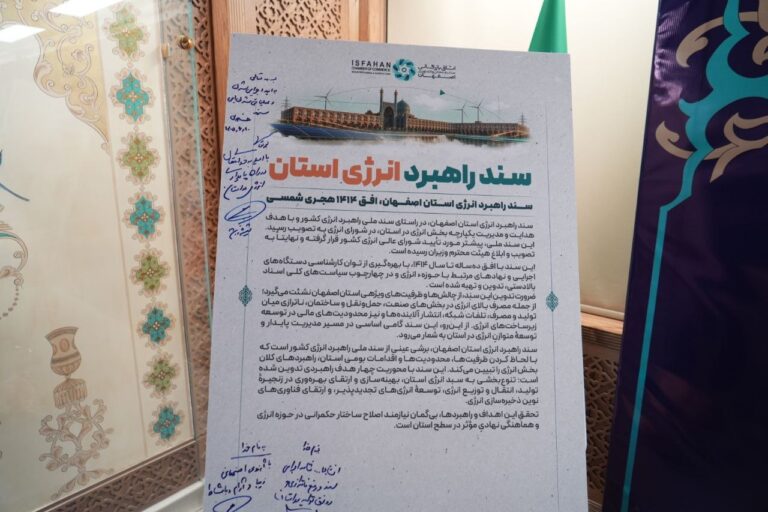 ISFAHAN
CHAMBER OF COMMERCE
اتاق بازرگانی
اصفهان
سند راهبرد انرژی استان
سند راهبرد انرژی استان اصفهان، افق ۱۴۱۴ هجری شمسی
سند راهبرد انرژی استان اصفهان، در راستای سند ملی راهبرد انرژی کشور و با هدف
هدایت و مدیریت یکپارچه بخش انرژی در استان، در شورای انرژی به تصویب رسید.
این سند ملی، پیشتر مورد تأیید شورای عالی انرژی کشور قرار گرفته و نهایتا به
تصویب و ابلاغ هیئت محترم وزیران رسیده است.
این سند با افق ده‌ساله تا سال ۱۴۱۴، با بهره‌گیری از توان کارشناسی دستگاه‌های
اجرایی و نهادهای مرتبط با حوزه انرژی و در چهارچوب سیاست‌های کلی اسناد
بالادستی، تدوین و تهیه شده است.
ضرورت تدوین این سند، از چالش‌ها و ظرفیت‌های ویژه‌ی استان اصفهان نشئت می‌گیرد؛
از جمله مصرف بالای انرژی در بخش‌های صنعت، حمل‌ونقل و ساختمان، ناترازی میان
تولید و مصرف، تلفات شبکه، انتشار آلاینده‌ها و نیز محدودیت‌های مالی در توسعه
زیرساخت‌های انرژی. از این‌رو، این سند گامی اساسی در مسیر مدیریت پایدار و
توسعهٔ متوازن انرژی در استان به شمار می‌رود.
سند راهبرد انرژی استان اصفهان، برشی عینی از سند ملی راهبرد انرژی کشور است که
با لحاظ کردن ظرفیت‌ها، محدودیت‌ها و اقدامات بومی استان، راهبردهای کلان
بخش انرژی را تبیین می‌کند. این سند با محوریت چهار هدف راهبردی تدوین شده
است: تنوع‌بخشی به سبد انرژی استان، بهینه‌سازی و ارتقای بهره‌وری در زنجیرهٔ
تولید، انتقال و توزیع انرژی، توسعهٔ انرژی‌های تجدیدپذیر، و ارتقای فناوری‌های
نوین ذخیره‌سازی انرژی.
تحقق این اهداف و راهبردها، بی‌گمان نیازمند اصلاح ساختار حکمرانی در حوزه انرژی
و هماهنگی نهادی مؤثر در سطح استان است.
به نام خدا